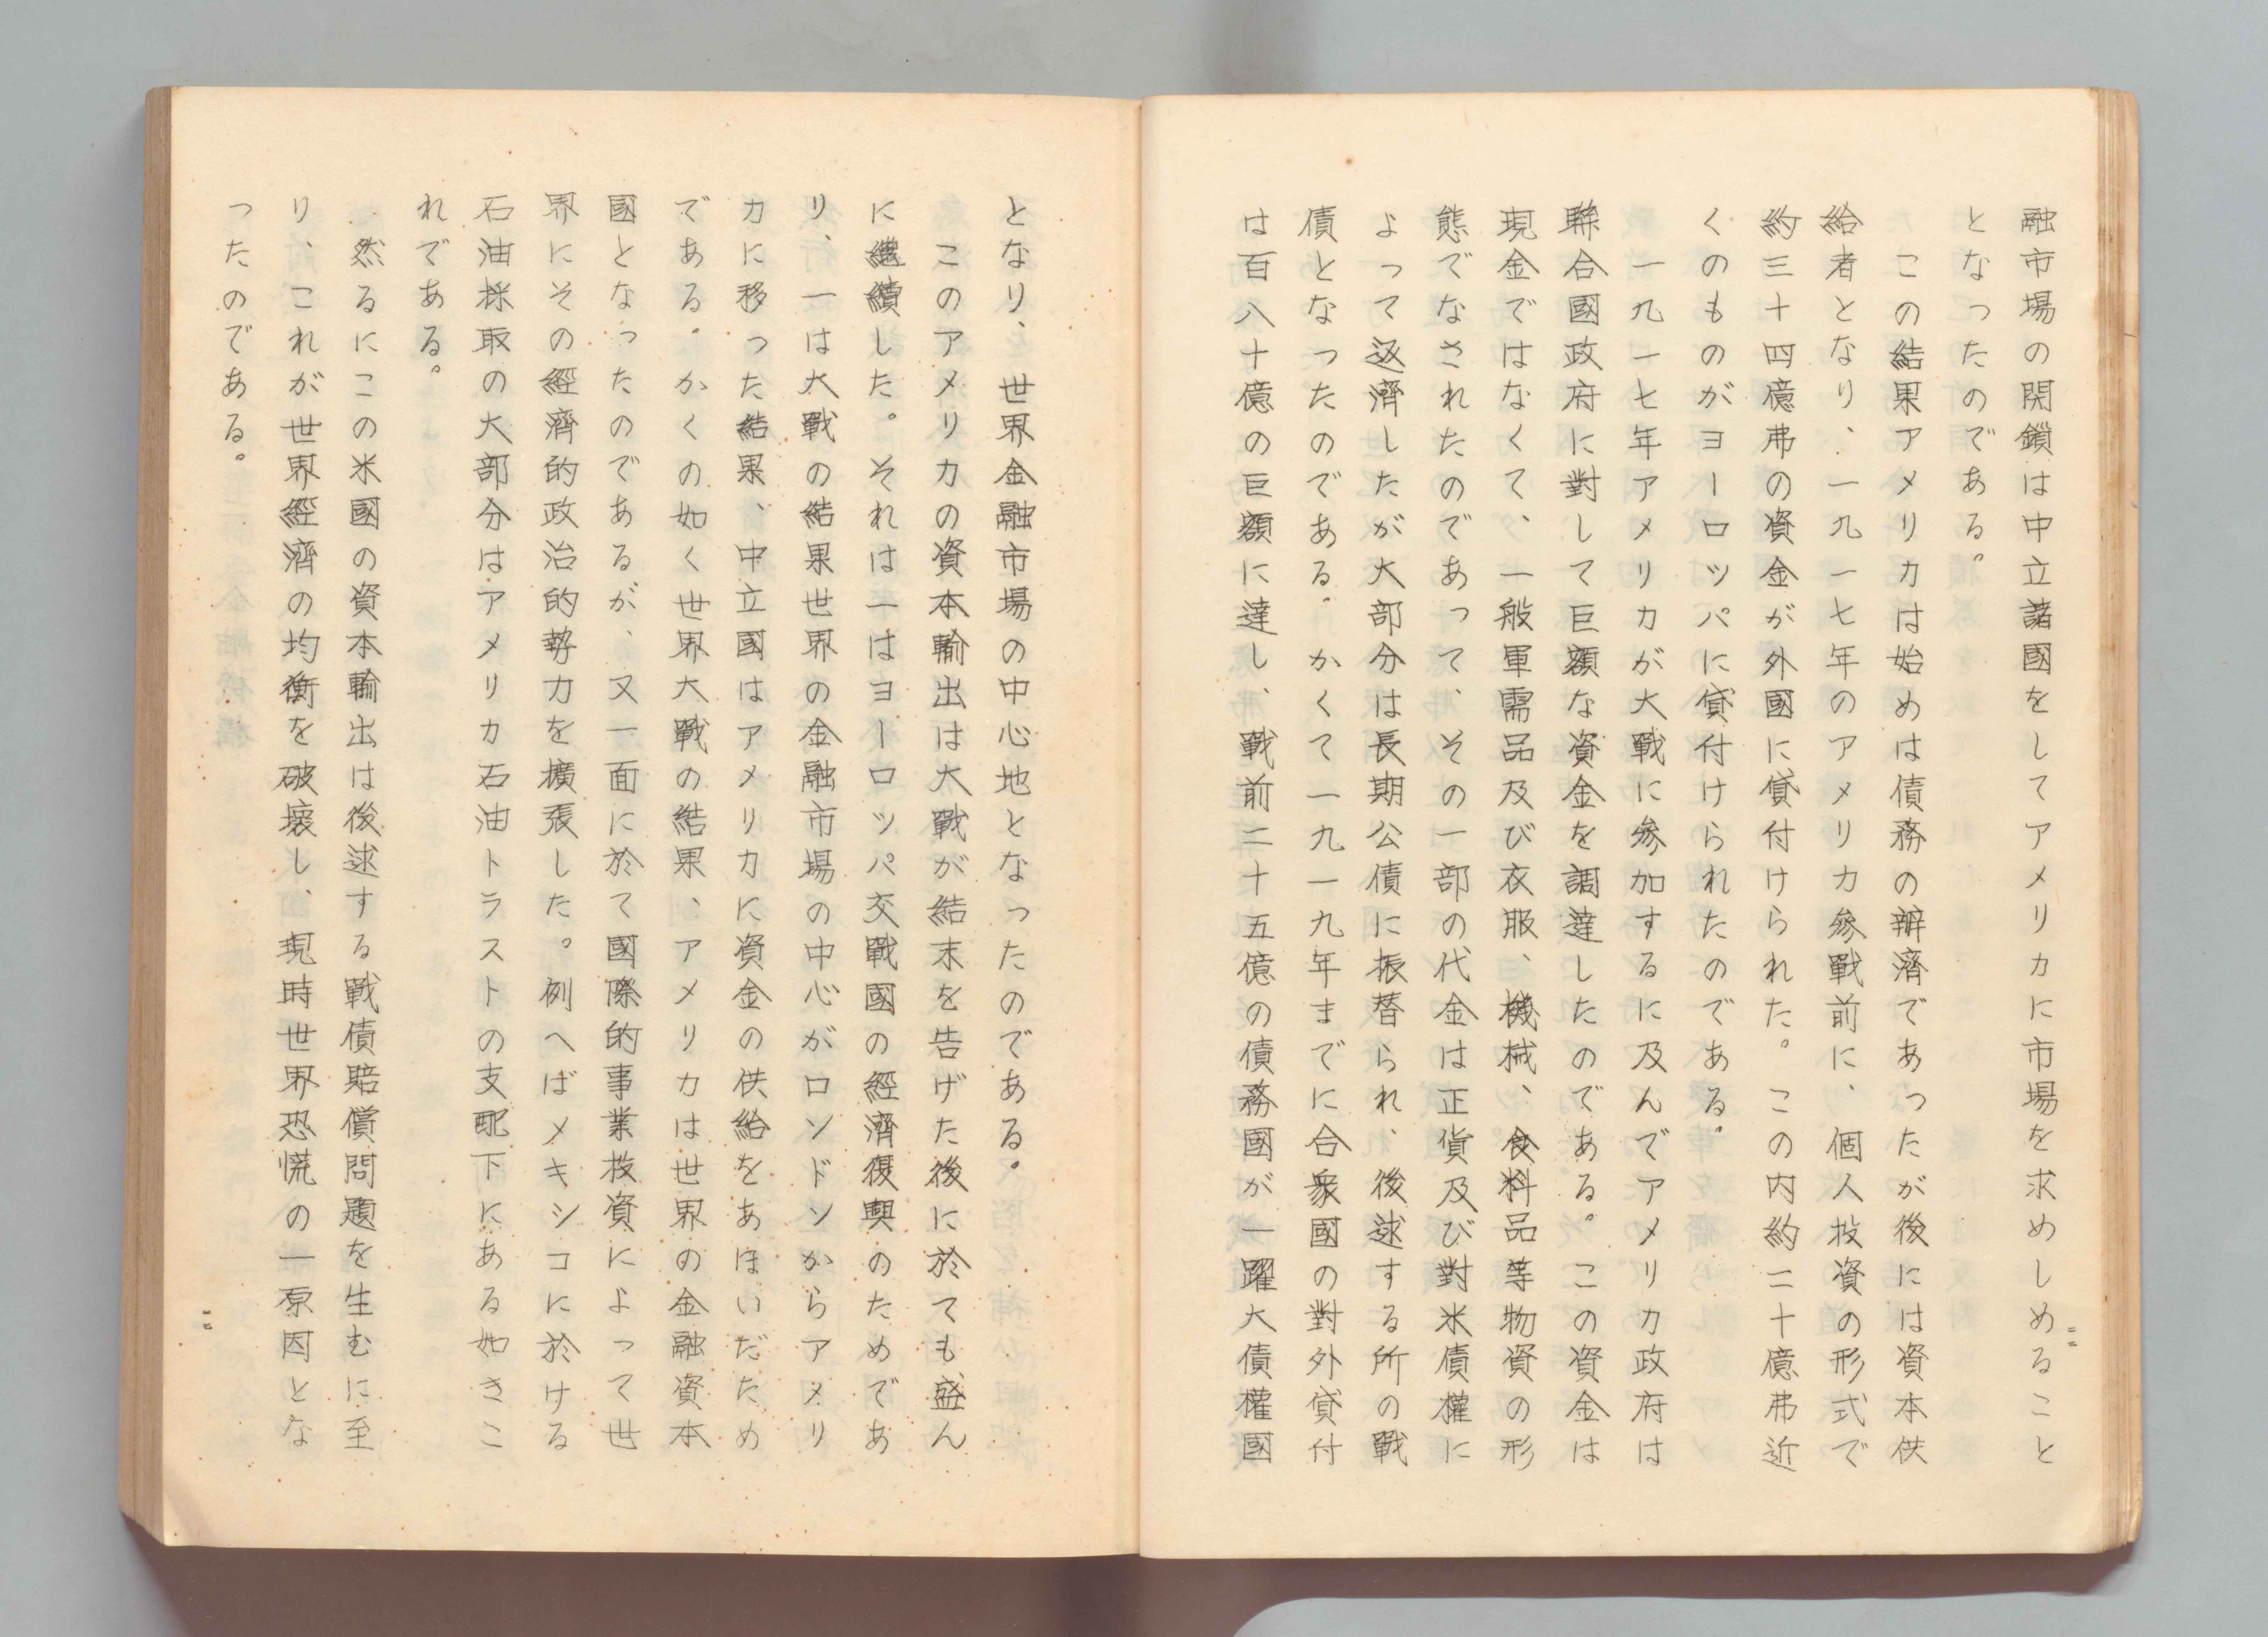 融市場の閉鎖は中立諸國をしてアメリカに市場を求めしめること
となったのである。
この結果アメリカは始めは債務の辦濟であったが後には資本供
給者となり、一九一七年のアメリカ參戰前に、個人投資の形式で
約三十四億弗の資金が外國に貸付けられた。この内約二十億弗近
くのものがヨーロッパに貸付けられたのである。
一九一七年アメリカが大戰に參加するに及んでアメリカ政府は
聯合國政府に對して巨額な資金を調達したのである。この資金は
現金ではなくて、一般軍需品及び衣服、機械、食料品等物資の形
態でなされたのであって、その一部の代金は正貨及び對米債權に
よって返濟したが大部分は長期公債に振替られ、後述する所の戰
債となったのである。かくて一九一九年までに合衆國の對外貸付
は百八十億の巨額に達し、戰前二十五億の債務國が一躍大債權國
二二
となり、世界金融市場の中心地となったのである。
このアメリカの資本輸出は大戰が結末を告げた後に於ても盛ん
に繼續した。それは一はヨーロッパ交戰國の經濟復興のためであ
り、一は大戰の結果世界の金融市場の中心がロンドンからアメリ
カに移った結果、中立國はアメリカに資金の供給をあほいだため
である。かくの如く世界大戰の結果、アメリカは世界の金融資本
國となったのであるが、又一面に於て國際的事業投資によって世
界にその經濟的政治的勢力を擴張した。例へばメキシコに於ける
石油採取の大部分はアメリカ石油トラストの支配下にある如きこ
れである。
然るにこの米國の資本輸出は後述する戰債賠償問題を生むに至
り、これが世界經濟の均衡を破壞し、現時世界恐慌の一原因とな
ったのである。